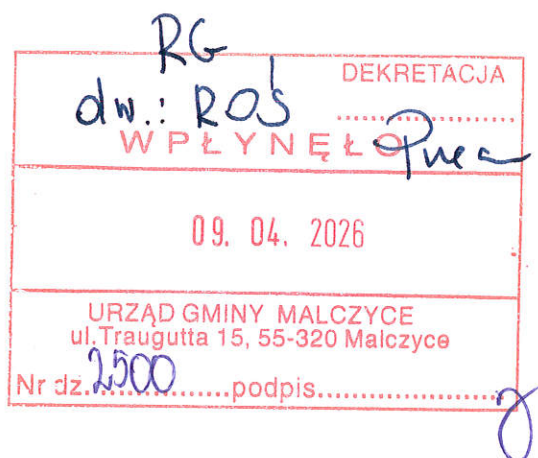 RG
DEKRETACJA
dw.: ROŚ
WPŁYNĘŁO
09. 04. 2026
URZĄD GMINY MALCZYCE
ul.Traugutta 15, 55-320 Malczyce
Nr dz. 2500 ............podpis........................